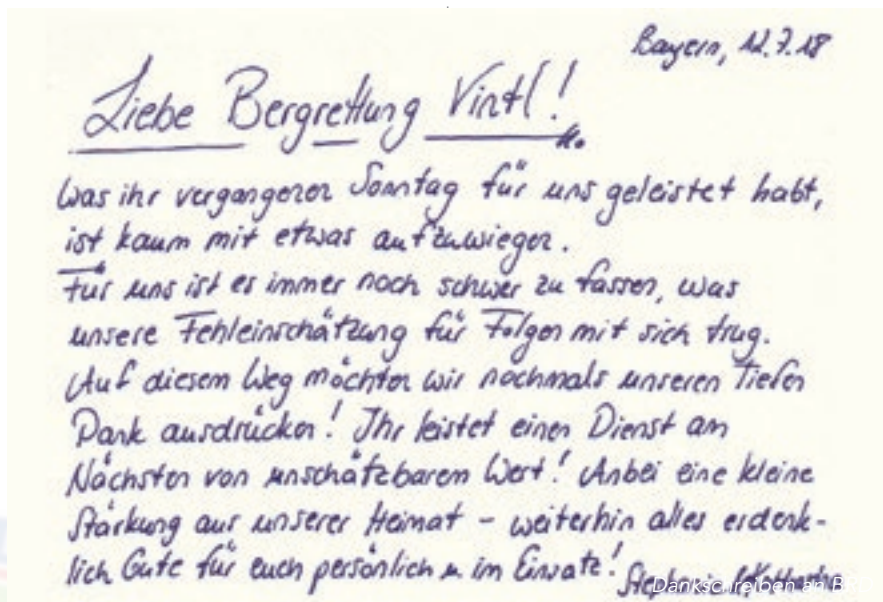 Bayern, 12.7.18
Liebe Bergrettung Vintl!
Was ihr vergangenen Sonntag für uns geleistet habt,
ist kaum mit etwas aufzuwiegen.
Für uns ist es immer noch schwer zu fassen, was
unsere Fehleinschätzung für Folgen mit sich trug.
Auf diesem Weg möchten wir nochmals unseren Tiefen
Dank ausdrücken! Ihr leistet einen Dienst am
Nächsten von unschätzbarem Wert! Anbei eine kleine
Stärkung aus unserer Heimat - weiterhin alles erdenk-
lich Gute für euch persönlich u. im Einsatz!
Dankschreiben an